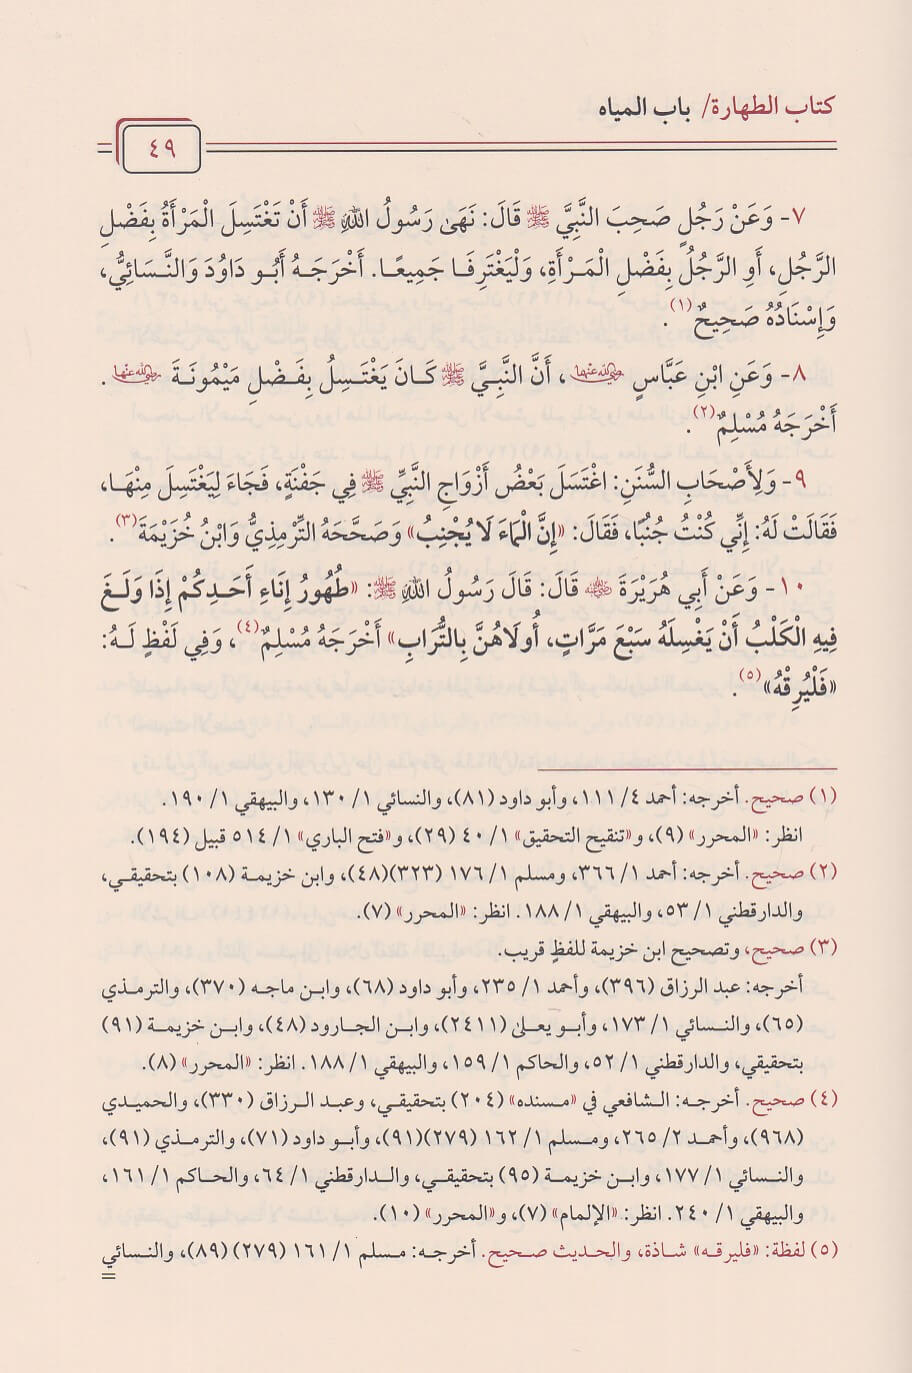 كتاب الطهارة/ باب المياه
٤٩
٧- وَعَنْ رَجُلٍ صَحِبَ النَّبِيَّ ﷺ قَالَ: نَهَى رَسُولُ اللهِ ﷺ أَنْ تَغْتَسِلَ الْمَرْأَةُ بِفَضْلِ
الرَّجُلِ، أَوِ الرَّجُلُ بِفَضْلِ الْمَرْأَةِ، وَلْيَغْتَرِفَا جَمِيعًا. أَخْرَجَهُ أَبُو دَاوُدَ وَالنَّسَائِيُّ،
وَإِسْنَادُهُ صَحِيحٌ(١).
٨- وَعَنِ ابْنِ عَبَّاسٍ رضي الله عنهما، أَنَّ النَّبِيَّ ﷺ كَانَ يَغْتَسِلُ بِفَضْلِ مَيْمُونَةَ رضي الله عنها.
أَخْرَجَهُ مُسْلِمٌ(٢).
٩- وَلِأَصْحَابِ السُّنَنِ: اغْتَسَلَ بَعْضُ أَزْوَاجِ النَّبِيِّ ﷺ فِي جَفْنَةٍ، فَجَاءَ لِيَغْتَسِلَ مِنْهَا،
فَقَالَتْ لَهُ: إِنِّي كُنْتُ جُنُبًا، فَقَالَ: «إِنَّ الْمَاءَ لَا يُجْنِبُ» وَصَحَّحَهُ التِّرْمِذِيُّ وَابْنُ خُزَيْمَةَ(٣).
١٠- وَعَنْ أَبِي هُرَيْرَةَ رضي الله عنه قَالَ: قَالَ رَسُولُ اللهِ ﷺ: «طُهُورُ إِنَاءِ أَحَدِكُمْ إِذَا وَلَغَ
فِيهِ الْكَلْبُ أَنْ يَغْسِلَهُ سَبْعَ مَرَّاتٍ، أُولَاهُنَّ بِالتُّرَابِ» أَخْرَجَهُ مُسْلِمٌ(٤)، وَفِي لَفْظٍ لَهُ:
«فَلْيُرِقْهُ»(٥).
(١) صحيح. أخرجه: أحمد ٤/ ١١١، وأبو داود (٨١)، والنسائي ١/ ١٣٠، والبيهقي ١/ ١٩٠.
انظر: «المحرر» (٩)، و«تنقيح التحقيق» ١/ ٤٠ (٢٩)، و«فتح الباري» ١/ ٥١٤ قبيل (١٩٤).
(٢) صحيح. أخرجه: أحمد ١/ ٣٦٦، ومسلم ١/ ١٧٦ (٣٢٣)(٤٨)، وابن خزيمة (١٠٨) بتحقيقي،
والدارقطني ١/ ٥٣، والبيهقي ١/ ١٨٨. انظر: «المحرر» (٧).
(٣) صحيح، وتصحيح ابن خزيمة للفظٍ قريب.
أخرجه: عبد الرزاق (٣٩٦)، وأحمد ١/ ٢٣٥، وأبو داود (٦٨)، وابن ماجه (٣٧٠)، والترمذي
(٦٥)، والنسائي ١/ ١٧٣، وأبو يعلى (٢٤١١)، وابن الجارود (٤٨)، وابن خزيمة (٩١)
بتحقيقي، والدارقطني ١/ ٥٢، والحاكم ١/ ١٥٩، والبيهقي ١/ ١٨٨. انظر: «المحرر» (٨).
(٤) صحيح. أخرجه: الشافعي في «مسنده» (٢٠٤) بتحقيقي، وعبد الرزاق (٣٣٠)، والحميدي
(٩٦٨)، وأحمد ٢/ ٢٦٥، ومسلم ١/ ١٦٢ (٢٧٩)(٩١)، وأبو داود (٧١)، والترمذي (٩١)،
والنسائي ١/ ١٧٧، وابن خزيمة (٩٥) بتحقيقي، والدارقطني ١/ ٦٤، والحاكم ١/ ١٦١،
والبيهقي ١/ ٢٤٠. انظر: «الإلمام» (٧)، و«المحرر» (١٠).
(٥) لفظة: «فليرقه» شاذة، والحديث صحيح. أخرجه: مسلم ١/ ١٦١ (٢٧٩) (٨٩)، والنسائي
=